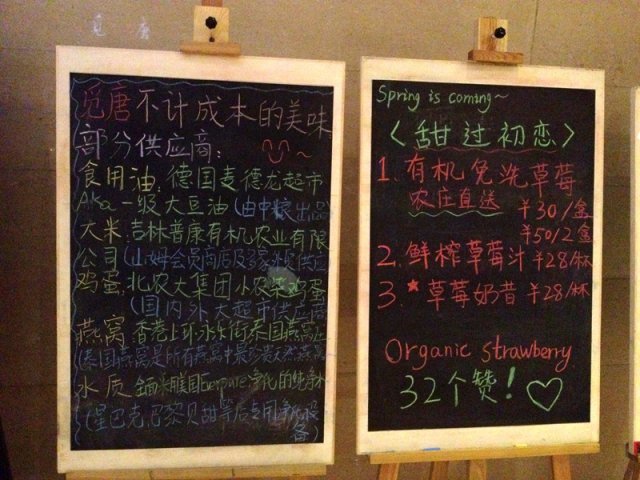 觅唐
觅唐不计成本的美味
部分供应商:
食用油:德国麦德龙超市
一级大豆油(由中粮出品)
大米:吉林普康有机农业有限
公司(山姆会员商店及多家外资供应
鸡蛋:北农大集团小农菜鸡蛋
(国内外大超市供应商
燕窝:香港上环永乐街泰国燕窝庄
(泰国燕窝是所有燕窝中最珍贵天然燕窝
水质:全面采用美国Everpure净化的纯净水
(星巴克,巴黎贝甜等店专用净化设
备)
Spring is coming~
<甜过初恋>
1.有机免洗草莓
农庄直送 ¥30/盒
¥50/2盒
2.鲜榨草莓汁¥28/杯
3.*草莓奶昔¥28/杯
Organic strawberry
32个赞!